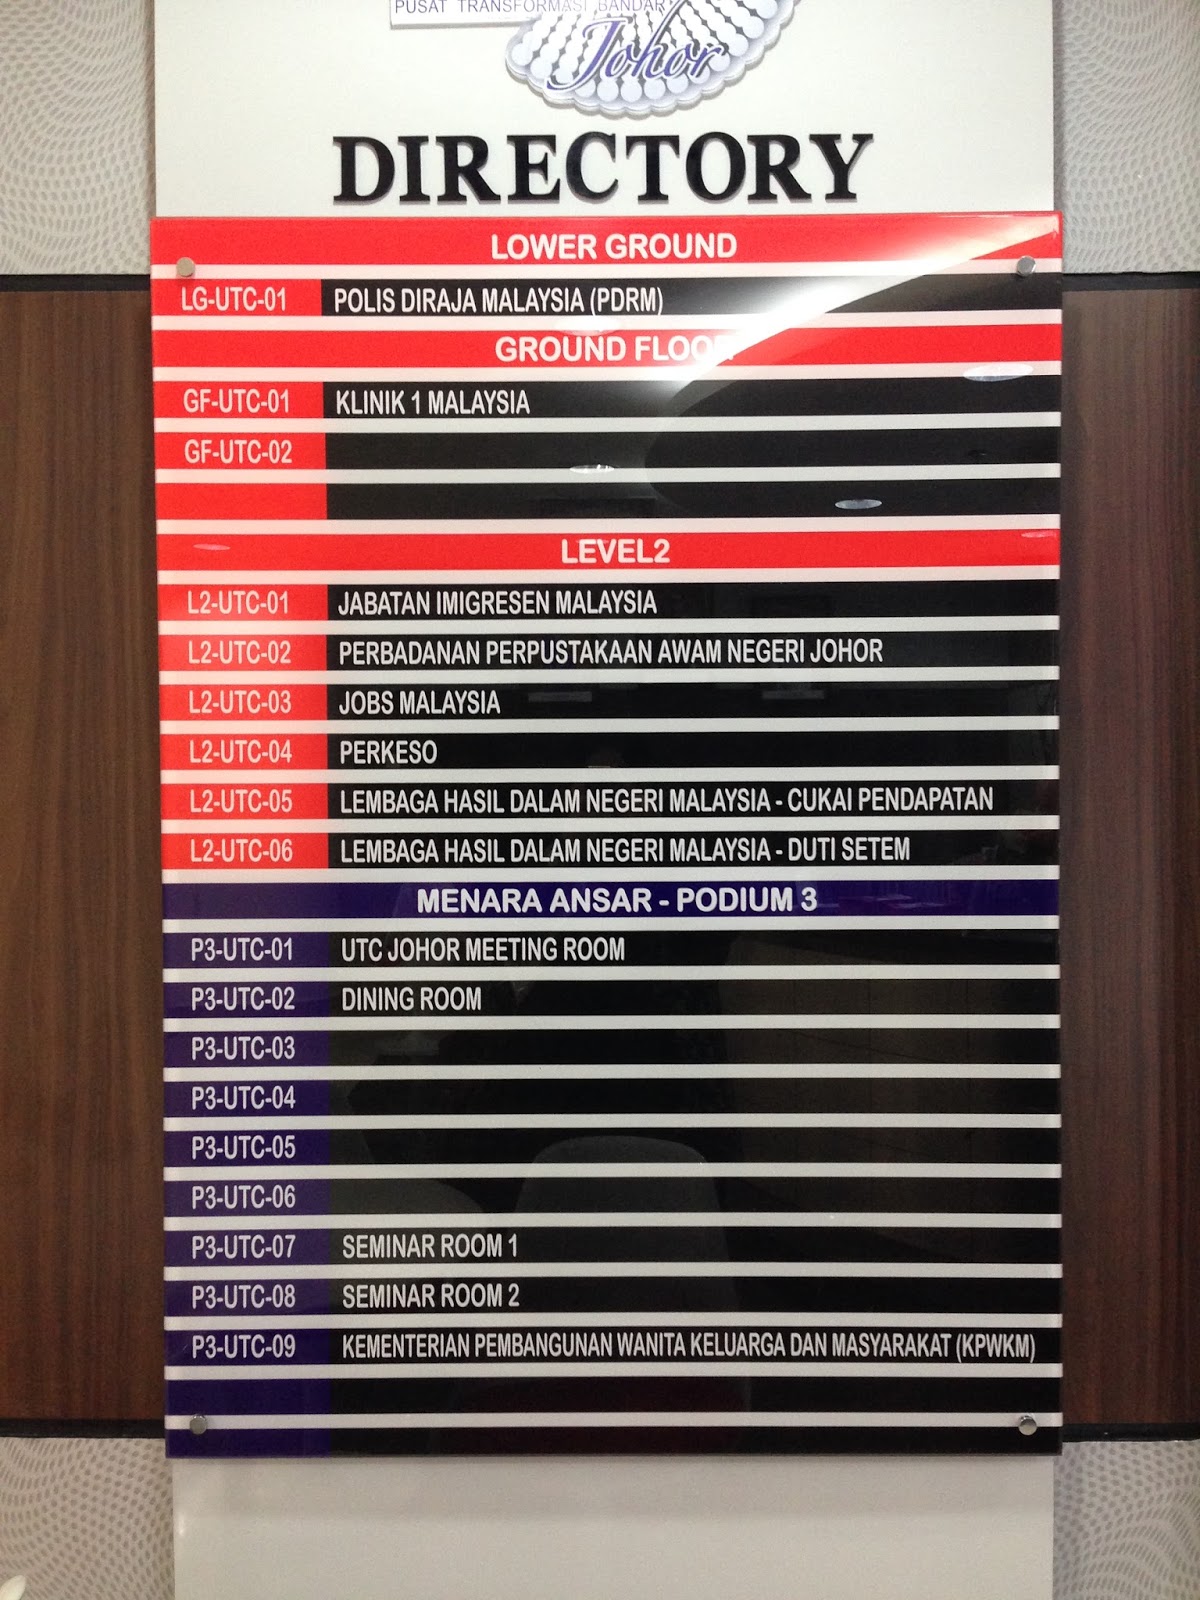 PUSAT TRANSFORMASI BANDAR
Johor
DIRECTORY
LOWER GROUND
LG-UTC-01 POLIS DIRAJA MALAYSIA (PDRM)
GROUND FLOOR
GF-UTC-01 KLINIK 1 MALAYSIA
GF-UTC-02
LEVEL2
L2-UTC-01 JABATAN IMIGRESEN MALAYSIA
L2-UTC-02 PERBADANAN PERPUSTAKAAN AWAM NEGERI JOHOR
L2-UTC-03 JOBS MALAYSIA
L2-UTC-04 PERKESO
L2-UTC-05 LEMBAGA HASIL DALAM NEGERI MALAYSIA - CUKAI PENDAPATAN
L2-UTC-06 LEMBAGA HASIL DALAM NEGERI MALAYSIA - DUTI SETEM
MENARA ANSAR - PODIUM 3
P3-UTC-01 UTC JOHOR MEETING ROOM
P3-UTC-02 DINING ROOM
P3-UTC-03
P3-UTC-04
P3-UTC-05
P3-UTC-06
P3-UTC-07 SEMINAR ROOM 1
P3-UTC-08 SEMINAR ROOM 2
P3-UTC-09 KEMENTERIAN PEMBANGUNAN WANITA KELUARGA DAN MASYARAKAT (KPWKM)